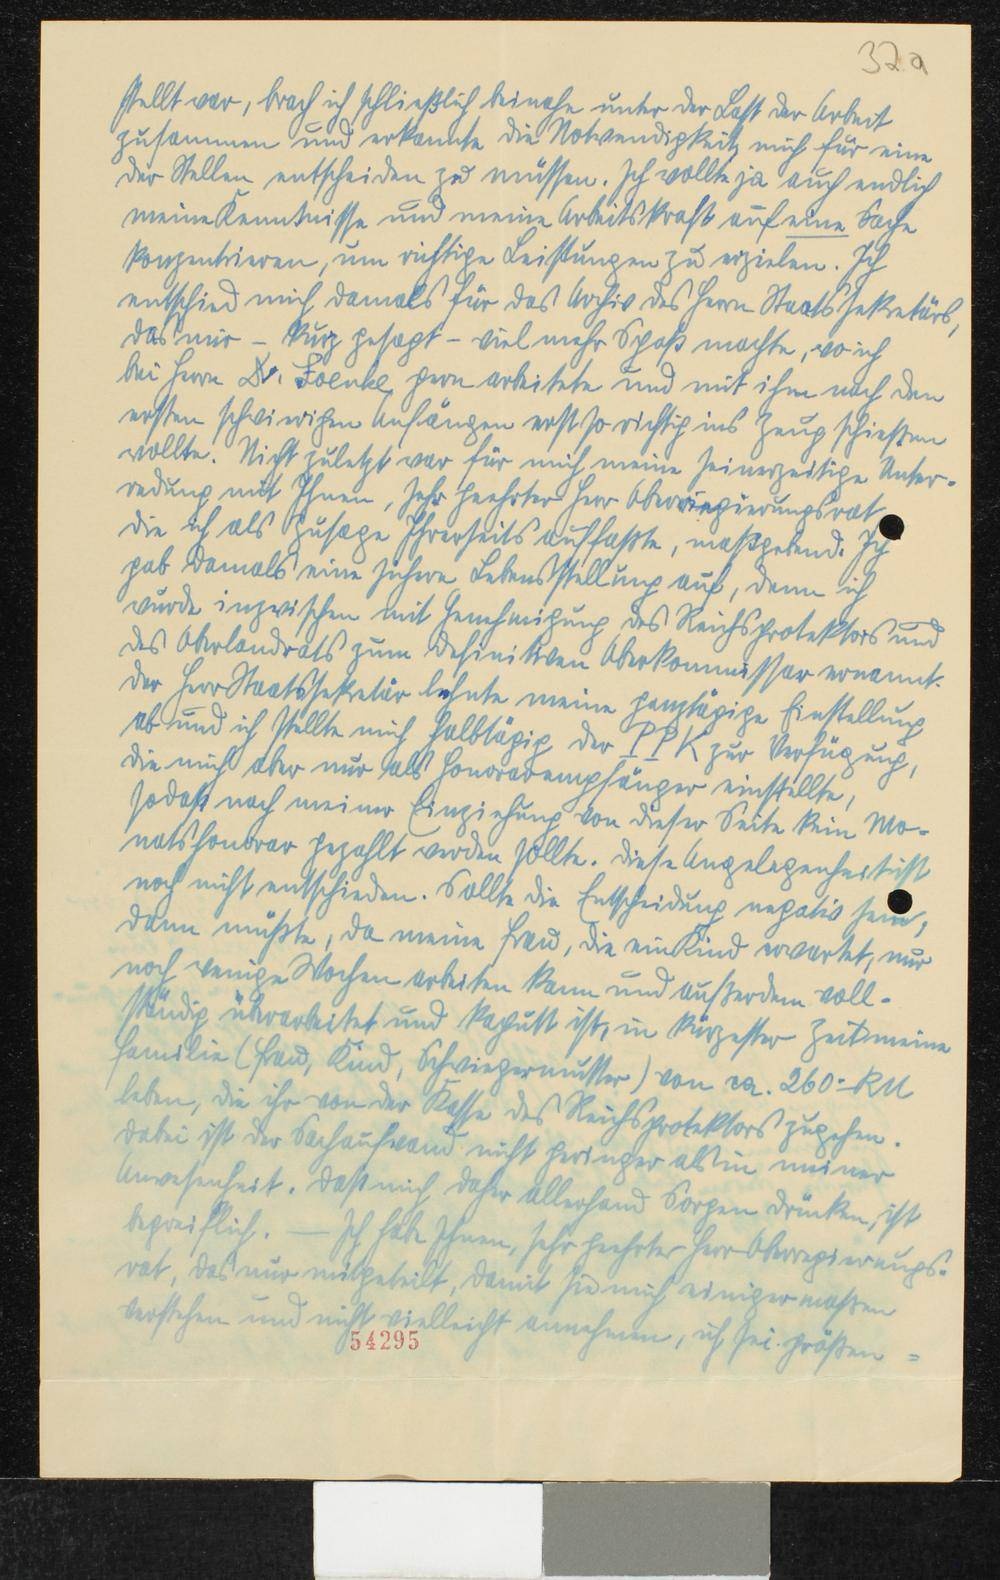 32a
stellt war, brach ich schließlich beinahe unter der Last der Arbeit
zusammen und erkannte die Notwendigkeit, mich für eine
der Stellen entscheiden zu müssen. Ich wollte ja auch endlich
meine Kenntnisse und meine Arbeitskraft auf eine Sache
konzentrieren, um richtige Leistungen zu erzielen. Ich
entschied mich damals für das Archiv des Herrn Staatssekretärs,
das mir – kurz gesagt – viel mehr Spaß machte, wo ich
bei Herrn Dr. gern arbeitete und mit ihm nach den
ersten schwierigen Anfängen erst so richtig ins Zeug schießen
wollte. Nicht zuletzt war für mich meine seinerzeitige Unter-
redung mit Ihnen, sehr geehrter Herr Oberregierungsrat
die ich als Zusage Ihrerseits auffaßte, maßgebend. Ich
gab damals eine sichere Lebensstellung auf, denn ich
wurde inzwischen mit Genehmigung des Reichsprotektors und
des Oberlandrats zum definitiven Oberkommissar ernannt.
Der Herr Staatssekretär lehnte meine ganztägige Einstellung
ab und ich stellte mich halbtägig der PPK zur Verfügung,
die mich aber nur als Honorarempfänger einstellte,
sodaß nach meiner Einziehung von dieser Seite kein Mo-
natshonorar gezahlt werden sollte. Diese Angelegenheit ist
noch nicht entschieden. Sollte die Entscheidung negativ sein,
dann müßte, da meine Frau, die ein Kind erwartet, nur
noch wenige Wochen arbeiten kann und außerdem voll-
ständig überarbeitet und kaputt ist, in kürzester Zeit meine
Familie (Frau, Kind, Schwiegermutter) von ca. 260.- RM
leben, die ihr von der Kasse des Reichsprotektors zugehen.
Dabei ist der Sachaufwand nicht geringer als in meiner
Anwesenheit. Daß mich daher allerhand Sorgen drücken, ist
begreiflich. — Ich habe Ihnen, sehr geehrter Herr Oberregierungs-
rat, das nur mitgeteilt, damit Sie mich einigermaßen
verstehen und nicht vielleicht annehmen, ich sei größen=
54295